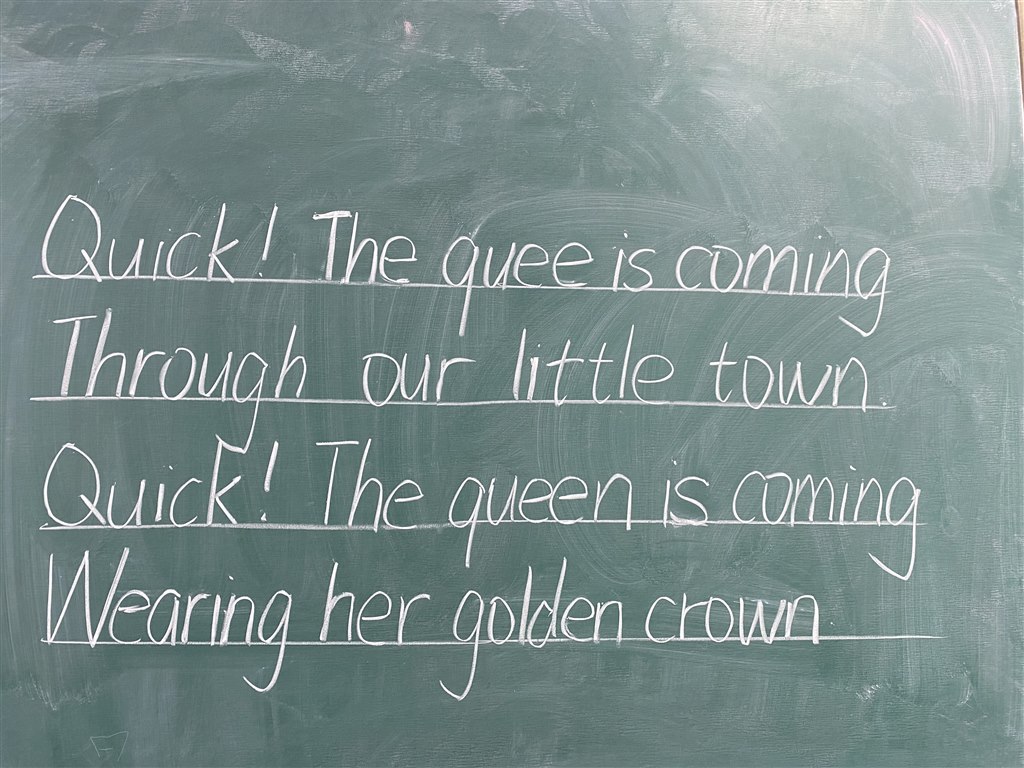 Quick! The quee is coming
Through our little town.
Quick! The queen is coming
Wearing her golden crown